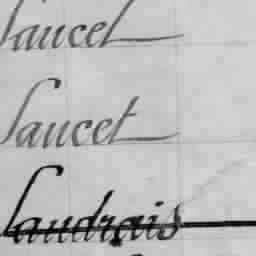 Saucet
Saucet
Landrais